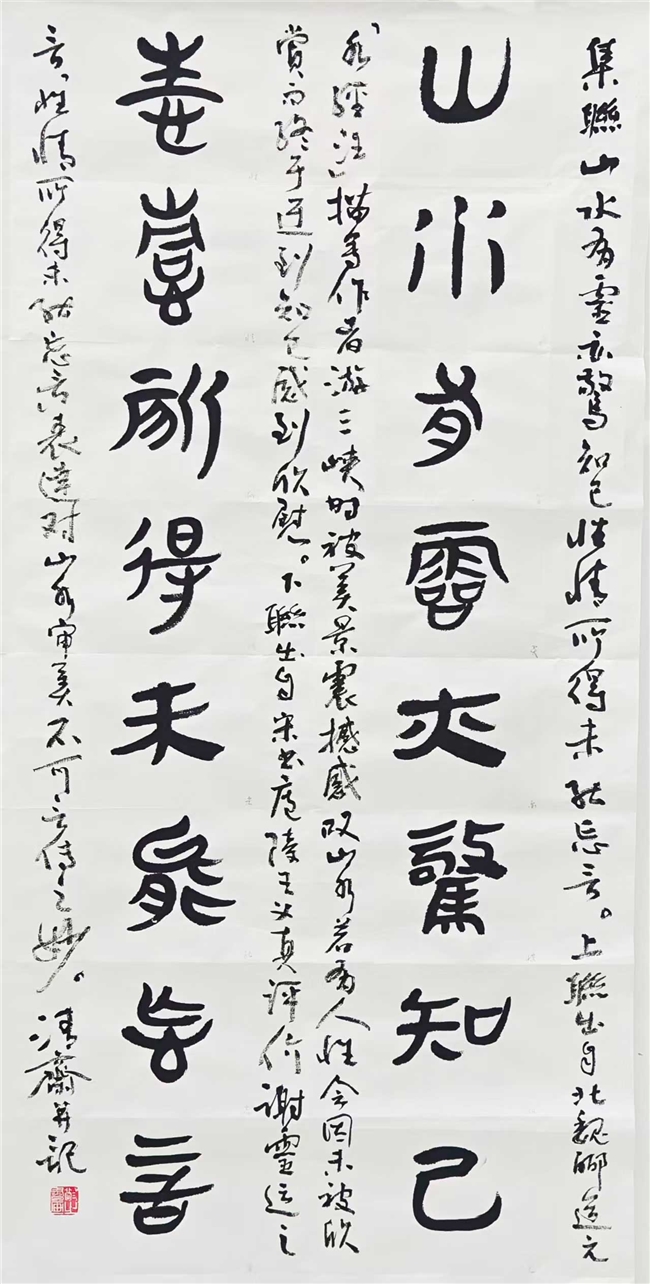 集聯山水有靈亦驚知己性情所得未能忘言。上聯出自北魏酈道元
山水有靈亦驚知己
《水經注》描寫作者游三峽时被美景震撼感叹山水若有人性会因未被欣
賞而終于遇到知己感到欣慰。下聯出自宋书廬陵王义真評价謝靈运之
性情所得未能忘言
言，性情所得未能忘言表達对山水审美不可言传之妙。清齋并記